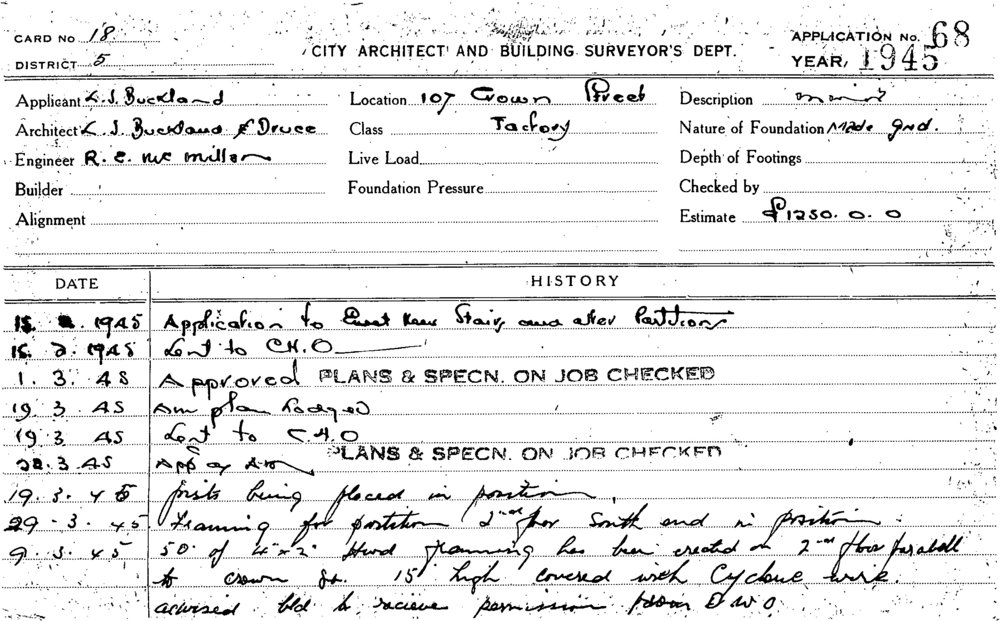 CARD No 18
DISTRICT 5
CITY ARCHITECT AND BUILDING SURVEYOR'S DEPT.
APPLICATION No. 68
YEAR, 1945
Applicant L.J. Buckland Location 107 Crown Street Description minor
Architect L J Buckland & Druce Class Factory Nature of Foundation Made gnd.
Engineer R. E. Mc Millan Live Load Depth of Footings
Builder Foundation Pressure Checked by
Alignment Estimate £1250. 0. 0
DATE HISTORY
15. 2. 1945 Application to Erect New Stairs and alter Partitions
15. 2. 1945 Sent to C.H.O
1. 3. 45 Approved PLANS & SPECN. ON JOB CHECKED
19 3. 45 Am plan Lodged
19 3 45 Sent to C.H.O
22. 3. 45 App of Am PLANS & SPECN. ON JOB CHECKED
19. 3. 45 Joists being placed in position.
29. 3. 45 Framing for partition 2nd floor South end in position.
9. 5. 45 50' of 4" x 2" Hwd framing has been erected on 2nd floor parallell
to Crown St. 15' high covered with Cyclone wire.
advised bld to recieve permission from D W O.